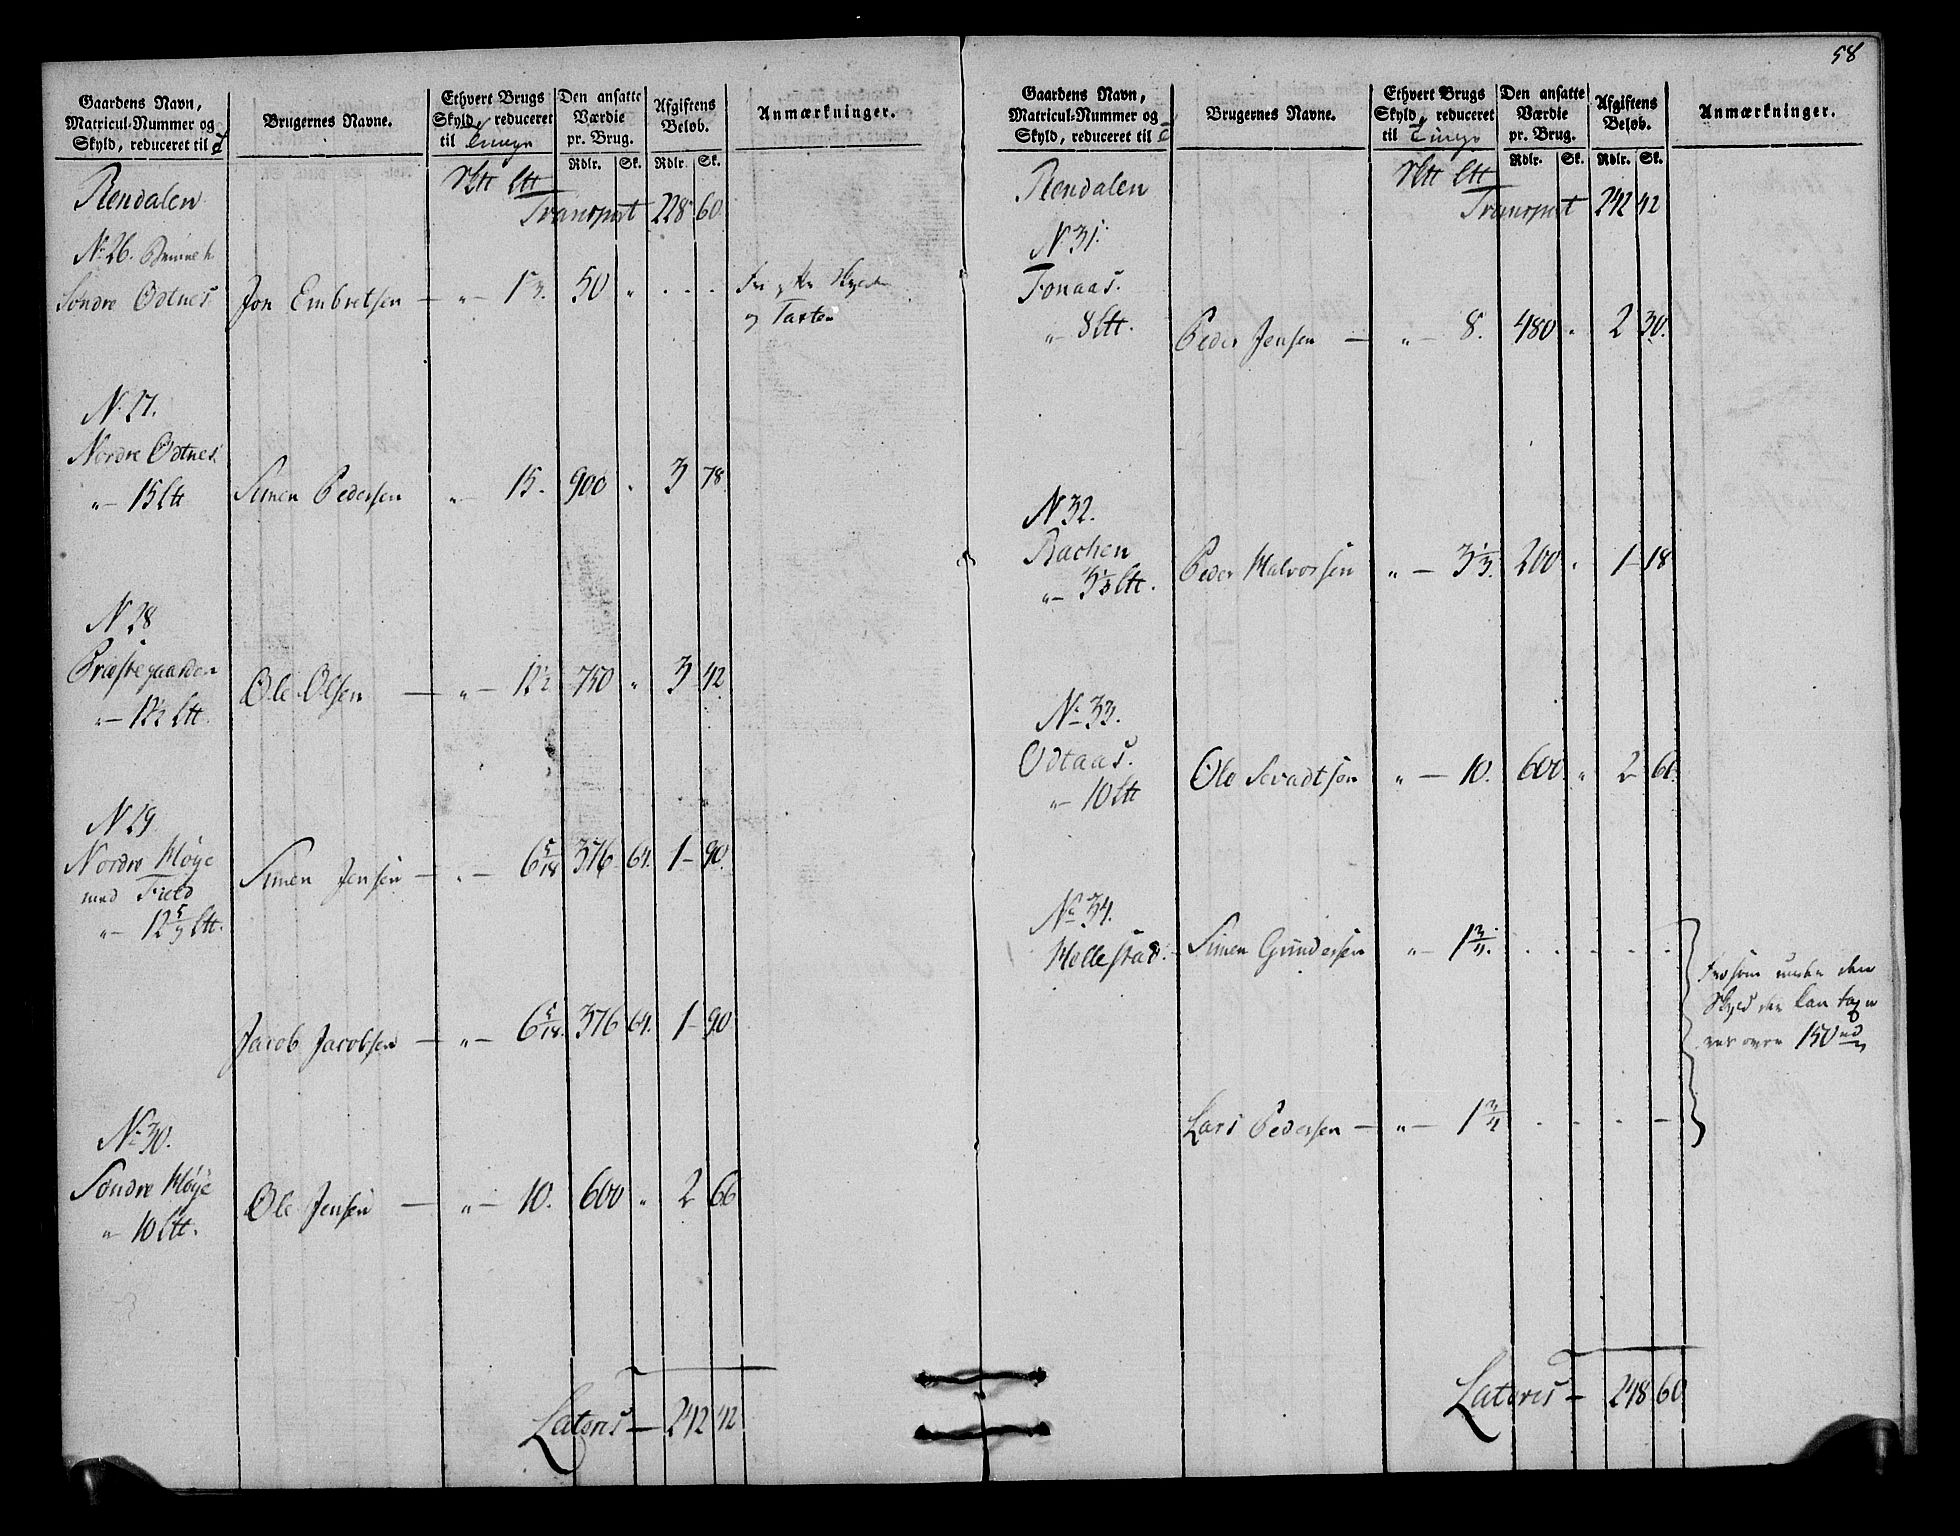 58
Gaardens Navn,
Matricul-Nummer og
Skyld, reduceret til
Brugernes Navne.
Ethvert Brugs
Skyld, reduceret
til Tunge
Den ansatte
Værdie
pr. Brug.
Rdlr. Sk.
Afgiftens
Beløb.
Rdlr. Sk.
Anmærkninger.
Rendalen
Transport 228 60
No 26.
Söndre Ødtnes Jon Embretsen — „ — 50 „ . . .
og
N. 27.
Nordre Ødtnes
„ — 15 Ltt Simen Pedersen „ — 15. 900 „ 3 78
N 28
Præstegaarden
„ — 12½ Ltt. Ole Olsen — „ — 12½ 750 „ 3 42
N 29.
Nordre Høye
med Field
„ — 12 5/9 Ltt. Simen Jensen — „ — 6 5/18 376 64. 1 — 90.
Jacob Jacobsen — „ — 6 5/18. 376 64. 1 — 90
No 30.
Söndre Høye
„ — 10 Ltt. Ole Jensen — „ — 10. 600 „ 2 66
Lateris — 242 42
Gaardens Navn,
Matricul-Nummer og
Skyld, reduceret til
Brugernes Navne.
Ethvert Brugs
Skyld, reduceret
til Tunge
Den ansatte
Værdie
pr. Brug.
Rdlr. Sk.
Afgiftens
Beløb.
Rdlr. Sk.
Anmærkninger.
Rendalen
Transport 242 42
N 31.
Fonaas.
„ — 8 Ltt. Peder Jensen — „ — 8. 480 „ 2 30.
N 32.
Bachen
„ — 3⅓ Ltt. Peder Halvorsen „ — 3⅓. 200 „ 1 — 18
No 33.
Ødtaas.
„ — 10 Ltt Ole Sevadtsen „ — 10. 600 „ 2 — 66.
No 34.
Hollestad. — Simen Gundersen „ — 1¾. . . . . .
som under den
Skyld der kan
over 150
Lars Pedersen — „ — 1¾ . . . —
Lateris — 248 60